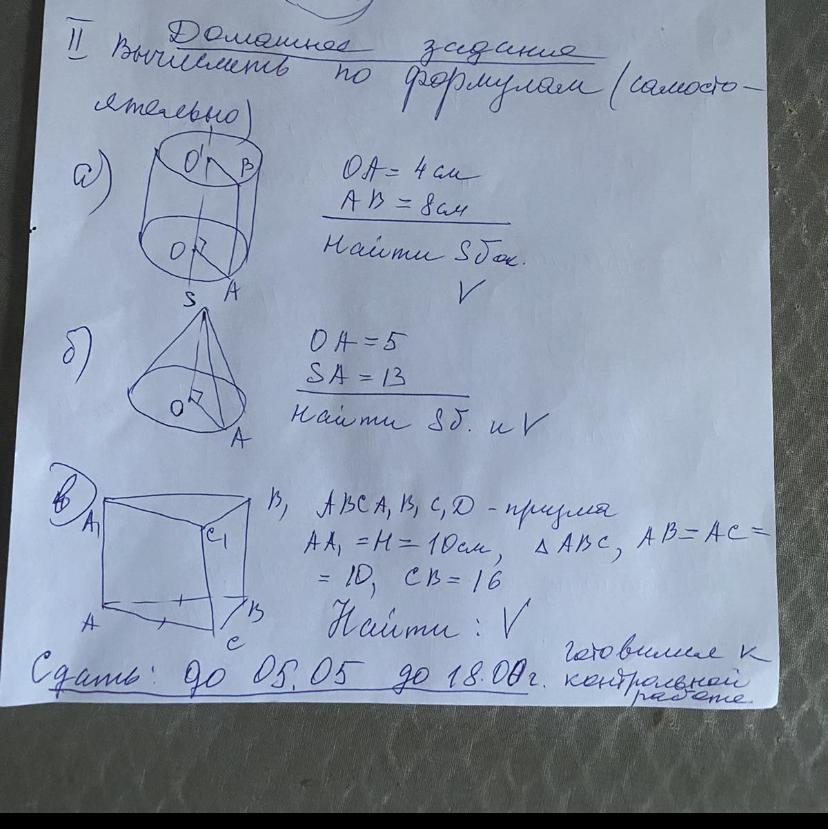 II Домашнее задание
Вычислить по формулам (самосто-
ятельно)
а)
O'
B
O
A
OA = 4 см
AB = 8 см
Найти Sбок.
V
б)
S
O
A
OA = 5
SA = 13
Найти Sб. и V
в)
A₁
B₁
C₁
A
B
C
ABCA₁B₁C₁D - призма
AA₁ = H = 10 см, △ABC, AB = AC =
= 10, CB = 16
Найти : V
Сдать: до 05.05 до 18.00г.
готовимся к
контрольной
работе